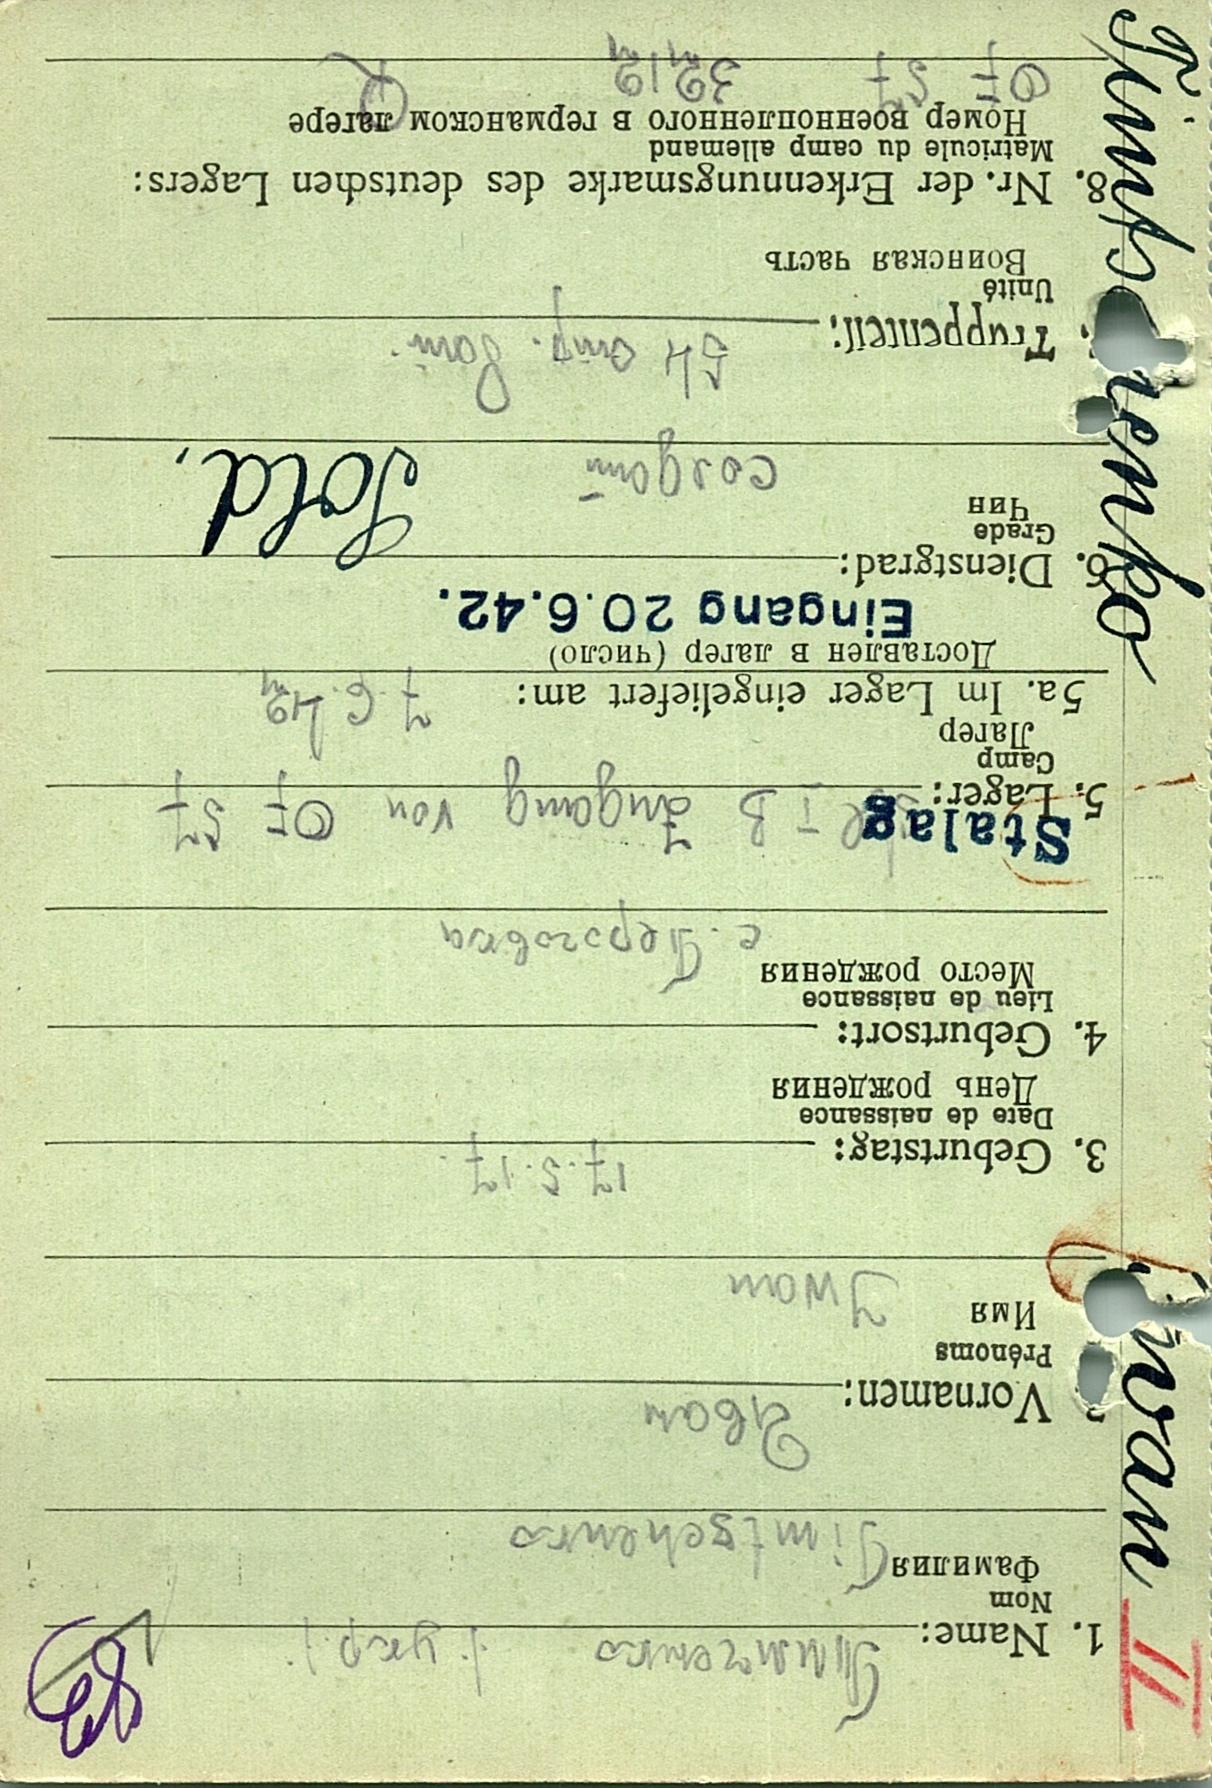 II
Timtschenko Iwan
1. Name: Тимченко (укр.)
Nom
Фамилия Timtschenko
Иван
2. Vornamen:
Prénoms
Имя
Iwan
3. Geburtstag: 17.5.17.
Date de naissance
День рождения
4. Geburtsort:
Lieu de naissance
Место рождения
с.
Stalag
5. Lager: I B Zugang von Of 57
Camp
Лагерь
5a. Im Lager eingeliefert am: 7.6.42
Доставлен в лагерь (число)
Eingang 20.6.42.
6. Dienstgrad: Sold.
Grade
Чин
солдат
7. Truppenteil: 54 стр. Бат.
Unité
Воинская часть
8. Nr. der Erkennungsmarke des deutschen Lagers:
Matricule du camp allemand
Номер военнопленного в германском лагере
Of 57 3212